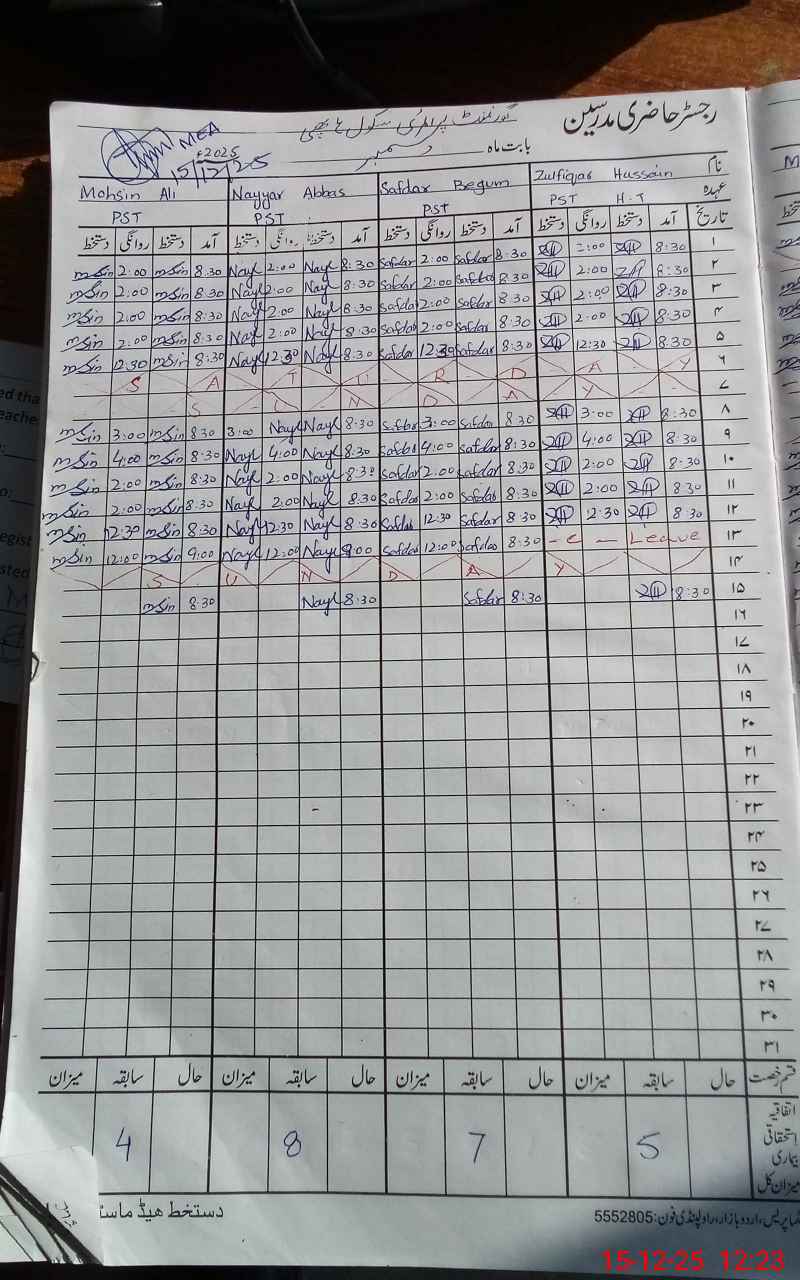 رجسٹر حاضری مدرسین
گورنمنٹ پرائمری سکول
بابت ماہ دسمبر 2025
MEA
15/12/25
نام Zulfiqar Hussain Safdar Begum Nayyar Abbas Mohsin Ali
عہدہ PST H.T PST PST PST
تاریخ آمد دستخط روانگی دستخط آمد دستخط روانگی دستخط آمد دستخط روانگی دستخط آمد دستخط روانگی دستخط
۱ 8:30 2:00 8:30 Safdar 2:00 Safdar 8:30 Nayl 2:00 Nayl 8:30 mSin 2:00 mSin
۲ 8:30 2:00 8:30 Safdar 2:00 Safdar 8:30 Nayl 2:00 Nayl 8:30 mSin 2:00 mSin
۳ 8:30 2:00 8:30 Safdar 2:00 Safdar 8:30 Nayl 2:00 Nayl 8:30 mSin 2:00 mSin
۴ 8:30 2:00 8:30 Safdar 2:00 Safdar 8:30 Nayl 2:00 Nayl 8:30 mSin 2:00 mSin
۵ 8:30 12:30 8:30 Safdar 12:30 Safdar 8:30 Nayl 12:30 Nayl 8:30 mSin 12:30 mSin
۶ S A T U R D A Y
۷ S U N D A Y
۸ 8:30 3:00 8:30 Safdar 3:00 Safdar 8:30 Nayl Nayl 3:00 8:30 mSin 3:00 mSin
۹ 8:30 4:00 8:30 Safdar 4:00 Safdar 8:30 Nayl 4:00 Nayl 8:30 mSin 4:00 mSin
۱۰ 8:30 2:00 8:30 Safdar 2:00 Safdar 8:30 Nayl 2:00 Nayl 8:30 mSin 2:00 mSin
۱۱ 8:30 2:00 8:30 Safdar 2:00 Safdar 8:30 Nayl 2:00 Nayl 8:30 mSin 2:00 mSin
۱۲ 8:30 2:30 8:30 Safdar 12:30 Safdar 8:30 Nayl 12:30 Nayl 8:30 mSin 12:30 mSin
۱۳ - C - Leave 8:30 Safdar 12:00 Safdar 9:00 Nayl 12:00 Nayl 9:00 mSin 12:00 mSin
۱۴ S U N D A Y
۱۵ 8:30 8:30 Safdar 8:30 Nayl 8:30 mSin
۱۶
۱۷
۱۸
۱۹
۲۰
۲۱
۲۲
۲۳
۲۴
۲۵
۲۶
۲۷
۲۸
۲۹
۳۰
۳۱
قسم رخصت حال سابقہ میزان حال سابقہ میزان حال سابقہ میزان حال سابقہ میزان
اتفاقیہ
استحقاقی 5 7 8 4
بیماری
میزان کل
پریس، اردو بازار، راولپنڈی فون: 5552805
دستخط ھیڈ ماسٹر
15-12-25 12:23